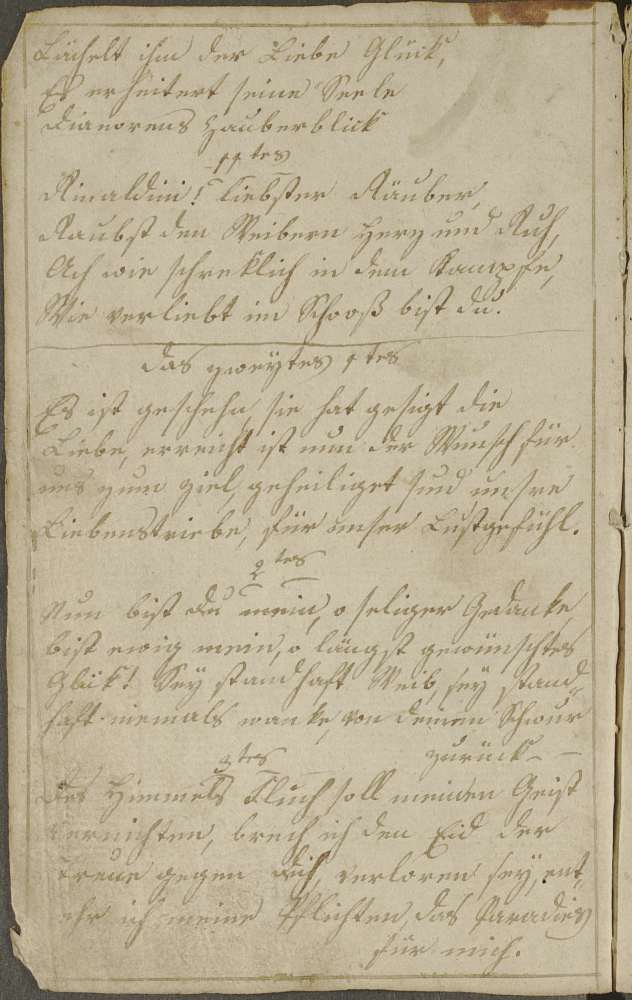 Lächelt ihm der Liebe Glück,
Es erheitert seine Seele
Dianorens Zauberblick
11tes
Rinaldini! liebster Räuber,
Raubst den Weibern Herz und Ruh,
Ach wie schreklich in dem Kampfe,
Wie verliebt im Schooß bist du.
Das zweytes 1tes
Es ist geschehn, sie hat gesigt die
Liebe, erreicht ist nun der Wunsch für
uns zum Ziel, geheiliget sind unsre
Liebenstriebe, für unser Lustgefühl.
2tes
Nun bist du mein, o seliger Gedanke,
bist ewig mein, o längst gewünschtes
Glük! Sey standhaft Weib, sey stand
haft niemals wanke, von deinem Schwur
zurück
3tes
Des Himmels Fluch soll meinen Geist
vernichten, brech ich den Eid der
Treue gegen dich, verloren sey, ent
ehr ich meine Pflichten, das Paradies
für mich.